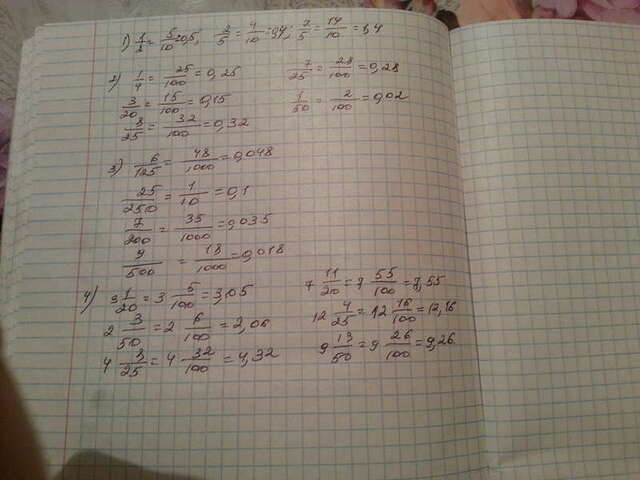 1) 1/2 = 5/10 = 0,5; 2/5 = 4/10 = 0,4; 7/5 = 14/10 = 1,4
2) 1/4 = 25/100 = 0,25 7/25 = 28/100 = 0,28
3/20 = 15/100 = 0,15 1/50 = 2/100 = 0,02
8/25 = 32/100 = 0,32
3) 6/125 = 48/1000 = 0,048
25/250 = 1/10 = 0,1
7/200 = 35/1000 = 0,035
9/500 = 18/1000 = 0,018
4) 3 1/20 = 3 5/100 = 3,05 7 11/20 = 7 55/100 = 7,55
2 3/50 = 2 6/100 = 2,06 12 4/25 = 12 16/100 = 12,16
4 8/25 = 4 32/100 = 4,32 9 13/50 = 9 26/100 = 9,26